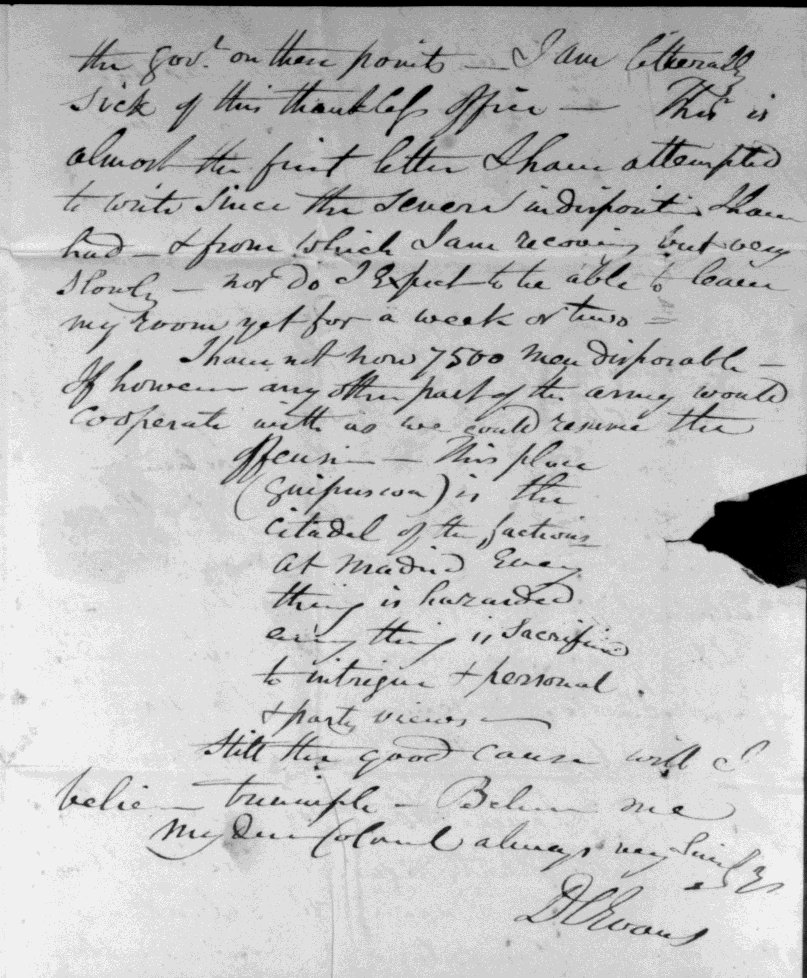 the Gov.t on these points — I am litterally
sick of this thankless office — This is
almost the first letter I have attempted
to write since the severe indisposition I have
had — & from which I am recoving but very
slowly — nor do I Expect to be able to leave
my room yet for a week or two =
I have not now 7500 men disposable —
If however any other part of the army would
cooperate with us we could resume the
offensive — This place
(Guipuscoa) is the
citadel of the factions
At Madrid Every
thing is hazarded
every thing is sacrificed
to intrigue & personal
& party views —
Still the good cause will I
believe triumph — Believe me
My Dear Colonel always very
D L Evans